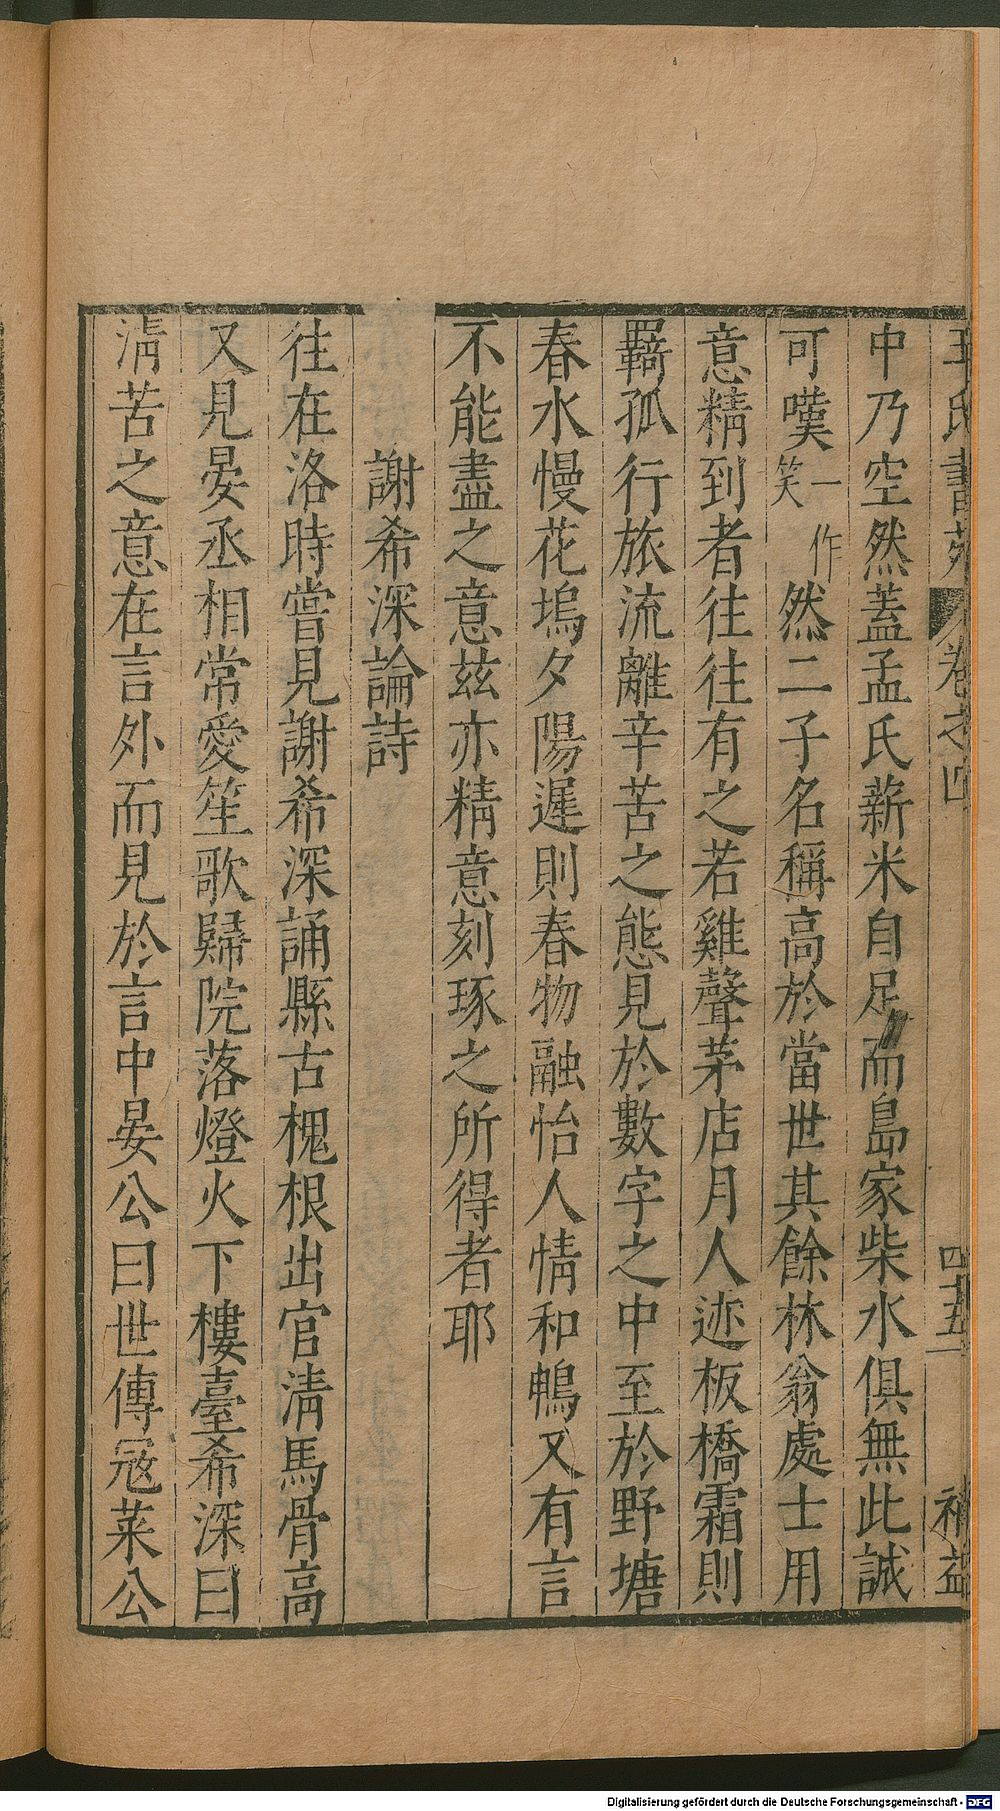 王氏書苑 卷之四 四十五 補益
中乃空然蓋孟氏薪米自足而島家柴水俱無此誠
可嘆一作笑然二子名稱高於當世其餘林翁處士用
意精到者往往有之若雞聲茅店月人迹板橋霜則
羇孤行旅流離辛苦之態見於數字之中至於野塘
春水慢花塢夕陽遲則春物融怡人情和鴨又有言
不能盡之意茲亦精意刻琢之所得者耶
謝希深論詩
往在洛時嘗見謝希深誦縣古槐根出官清馬骨高
又見晏丞相常愛笙歌歸院落燈火下樓臺希深曰
清苦之意在言外而見於言中晏公曰世傳寇萊公
Digitalisierung gefördert durch die Deutsche Forschungsgemeinschaft - DFG